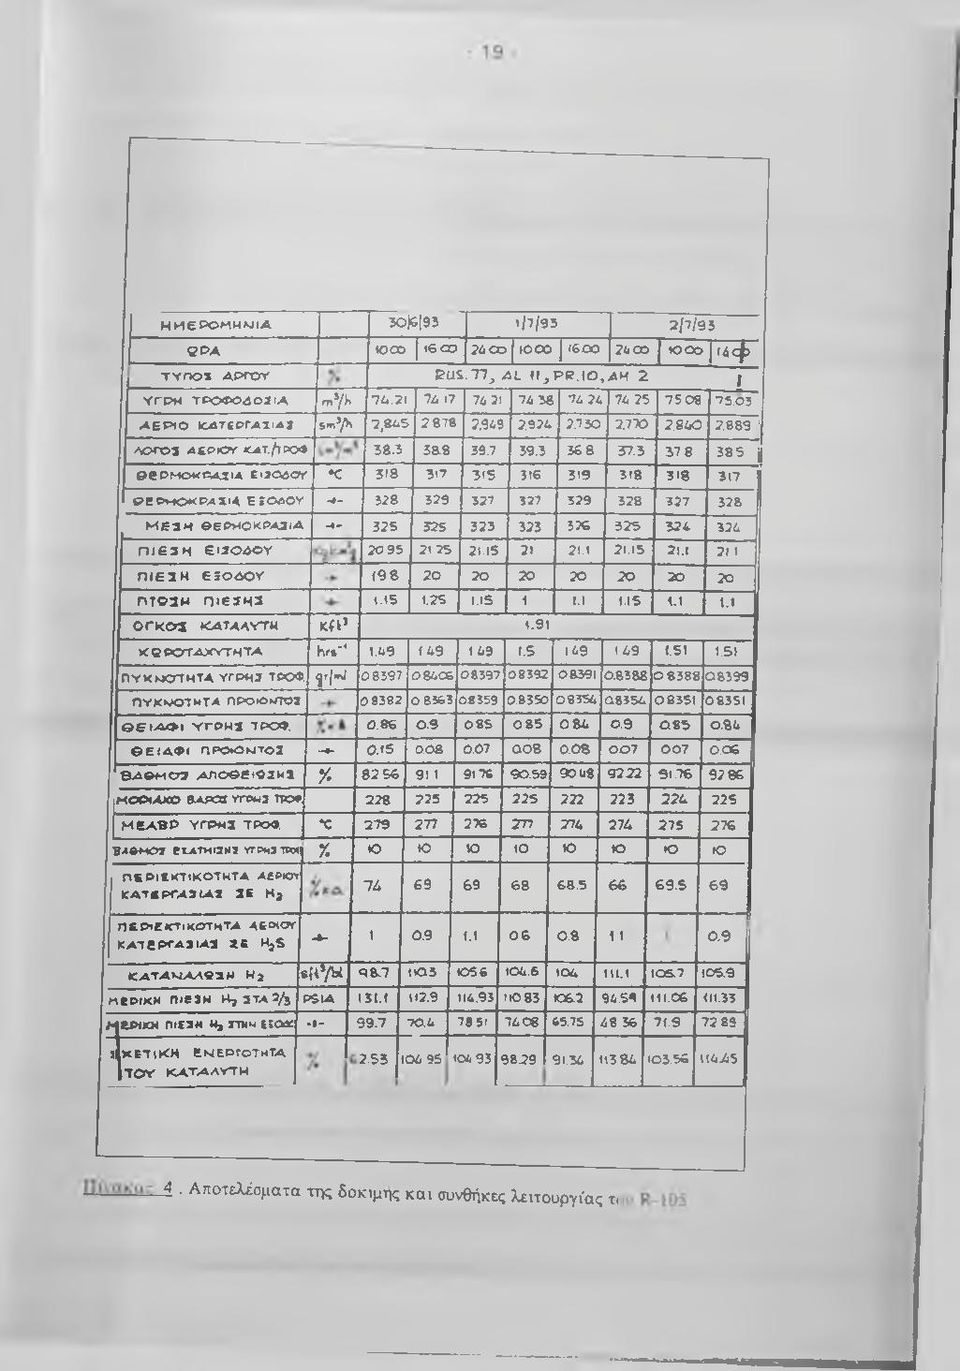 - 19 -
ΗΜΕΡΟΜΗΝΙΑ 30/6/93 1/7/93 2/7/93
ΩΡΑ 10 00 16 00 24 00 10 00 16.00 24 00 10 00 14 00
ΤΥΠΟΣ ΑΡΓΟΥ % RUS. 77, AL 11, PR.10, AH 2
ΥΓΡΗ ΤΡΟΦΟΔΟΣΙΑ m³/h 74.21 74 17 74 21 74 38 74 24 74 25 75 08 75.03
ΑΕΡΙΟ ΚΑΤΕΡΓΑΣΙΑΣ sm³/h 2,845 2 878 2,949 2,924 2,730 2,770 2 840 2,889
ΛΟΓΟΣ ΑΕΡΙΟΥ ΚΑΤ./ΤΡΟΦ 38.3 38.8 39.7 39.3 36 8 37.3 37 8 38 5
ΘΕΡΜΟΚΡΑΣΙΑ ΕΙΣΟΔΟΥ °C 318 317 315 316 319 318 318 317
ΘΕΡΜΟΚΡΑΣΙΑ ΕΞΟΔΟΥ -"- 328 329 327 327 329 328 327 328
ΜΕΣΗ ΘΕΡΜΟΚΡΑΣΙΑ -"- 325 325 323 323 326 325 324 324
ΠΙΕΣΗ ΕΙΣΟΔΟΥ 20 95 21 25 21.15 21 21.1 21.15 21.1 21 1
ΠΙΕΣΗ ΕΞΟΔΟΥ 19 8 20 20 20 20 20 20 20
ΠΤΩΣΗ ΠΙΕΣΗΣ 1.15 1.25 1.15 1 1.1 1.15 1.1 1.1
ΟΓΚΟΣ ΚΑΤΑΛΥΤΗ Kft³ 1.91
ΧΩΡΟΤΑΧΥΤΗΤΑ hrs⁻¹ 1.49 1 49 1 49 1.5 1 49 1 49 1.51 1.51
ΠΥΚΝΟΤΗΤΑ ΥΓΡΗΣ ΤΡΟΦ. gr/ml 0 8397 0 8406 0 8397 0 8392 0 8391 0.8388 0 8388 0.8399
ΠΥΚΝΟΤΗΤΑ ΠΡΟΙΟΝΤΟΣ 0 8382 0 8363 0.8359 0.8350 0 8354 0.8354 0.8351 0 8351
ΘΕΙΑΦΙ ΥΓΡΗΣ ΤΡΟΦ. 0.86 0.9 0 85 0 85 0 84 0.9 0.85 0.84
ΘΕΙΑΦΙ ΠΡΟΙΟΝΤΟΣ -"- 0.15 0.08 0.07 0.08 0.08 0.07 0 07 0.06
ΒΑΘΜΟΣ ΑΠΟΘΕΙΩΣΗΣ % 82 56 91 1 91 76 90.59 90 48 92 22 91.76 92 86
ΜΟΡΙΑΚΟ ΒΑΡΟΣ ΥΓΡΗΣ ΤΡΟΦ. 228 225 225 225 222 223 224 225
ΜΕΑΒΡ ΥΓΡΗΣ ΤΡΟΦ. °C 279 277 276 277 274 274 275 276
ΒΑΘΜΟΣ ΕΞΑΤΜΙΣΗΣ ΥΓΡΗΣ ΤΡΟΦ % 10 10 10 10 10 10 10 10
ΠΕΡΙΕΚΤΙΚΟΤΗΤΑ ΑΕΡΙΟΥ
ΚΑΤΕΡΓΑΣΙΑΣ ΣΕ H₂ 74 69 69 68 68.5 66 69.5 69
ΠΕΡΙΕΚΤΙΚΟΤΗΤΑ ΑΕΡΙΟΥ
ΚΑΤΕΡΓΑΣΙΑΣ ΣΕ H₂S -"- 1 0.9 1.1 0 6 0.8 1 1 0.9
ΚΑΤΑΝΑΛΩΣΗ H₂ sft³/bl 98.7 110.3 105 6 104.6 104 111.1 106.7 105.9
ΜΕΡΙΚΗ ΠΙΕΣΗ H₂ ΣΤΑ 2/3 PSIA 131.1 112.9 114.93 110 83 106.2 94 59 111.06 111.33
ΜΕΡΙΚΗ ΠΙΕΣΗ H₂ ΣΤΗΝ ΕΞΟΔΟ -"- 99.7 70.4 78 51 74 08 65.75 48 36 71.9 72 89
ΣΧΕΤΙΚΗ ΕΝΕΡΓΟΤΗΤΑ
ΤΟΥ ΚΑΤΑΛΥΤΗ % 2.53 104 95 104 93 98.29 91.34 113 84 103.56 114.45
Πίνακας 4 . Αποτελέσματα της δοκιμής και συνθήκες λειτουργίας του R-105